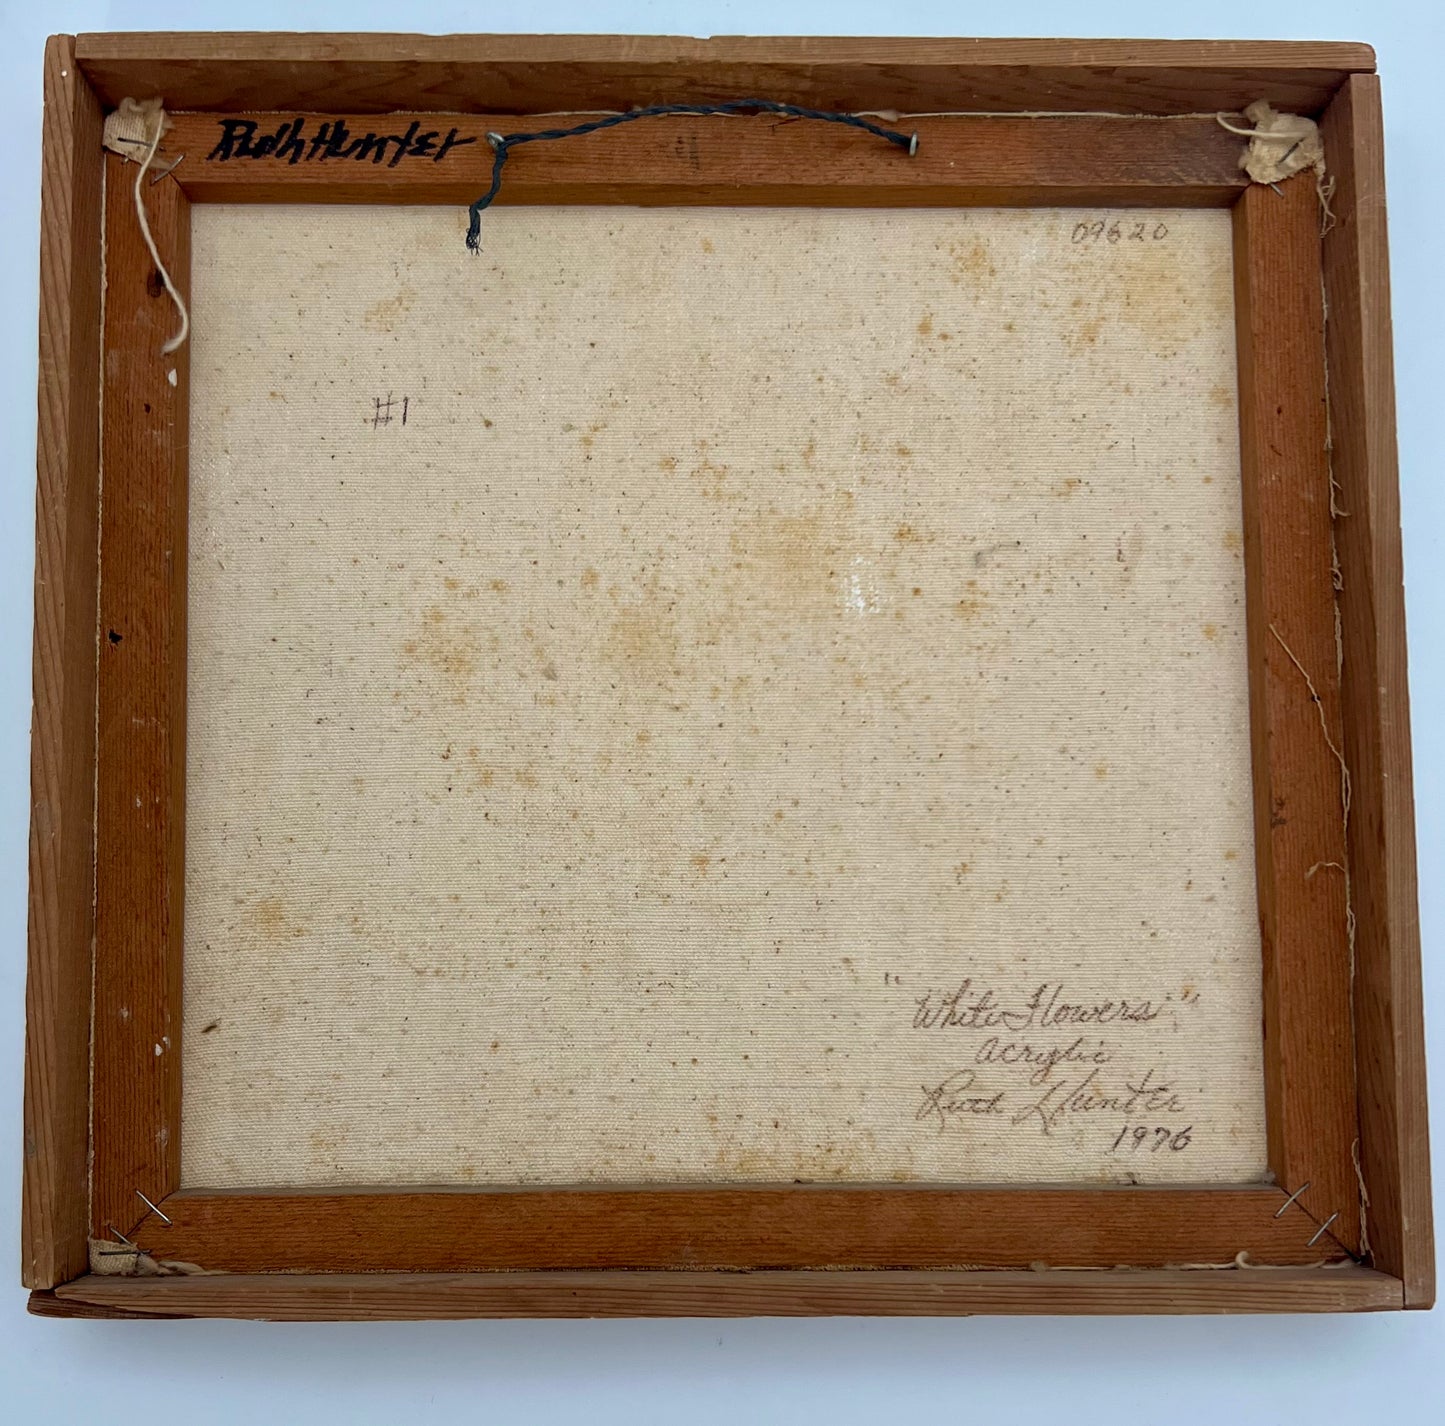 Ruth Hunter
09620
#1
"White Flowers"
Acrylic
Ruth Hunter
1976